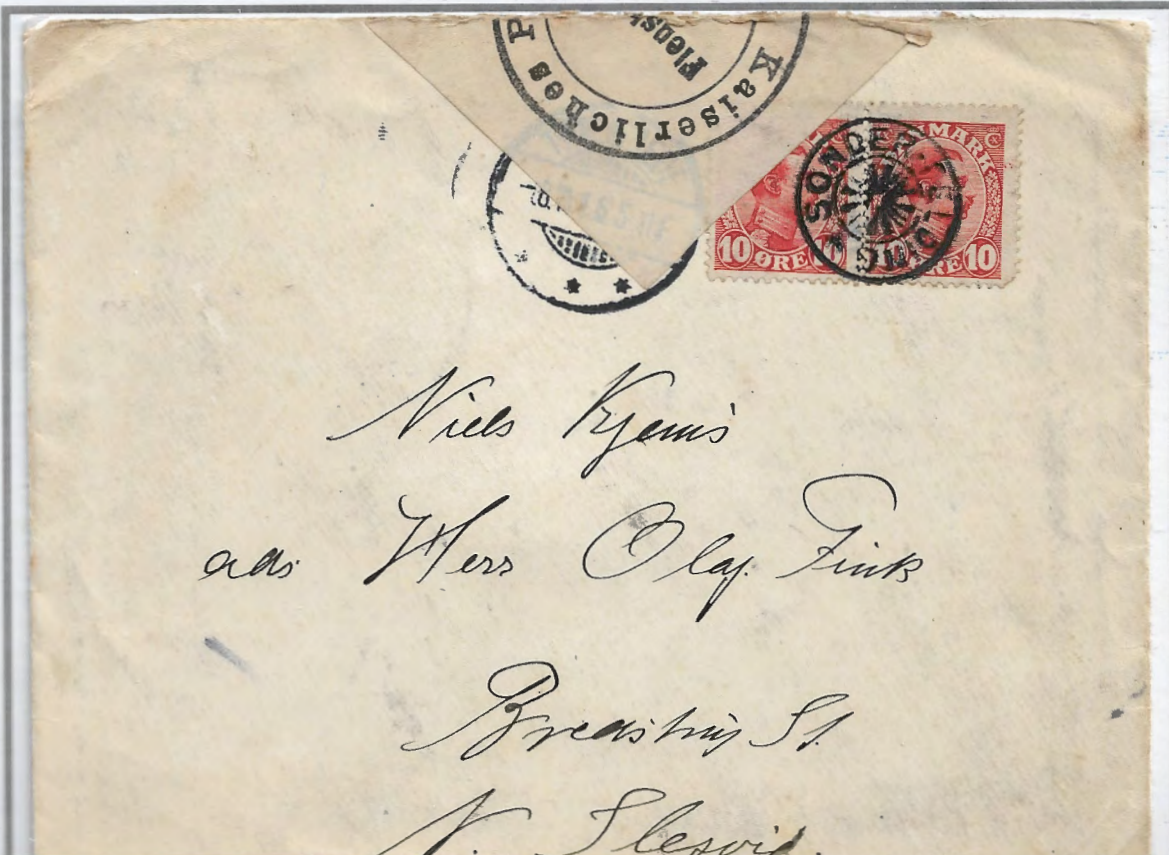 Kaiserliches P
Flensb
SONDER
MARK
10 ØRE 10
ØRE 10
Niels Kjems
ads. Herr Olaf Fink
Bredstrup St.
N. Slesvig.